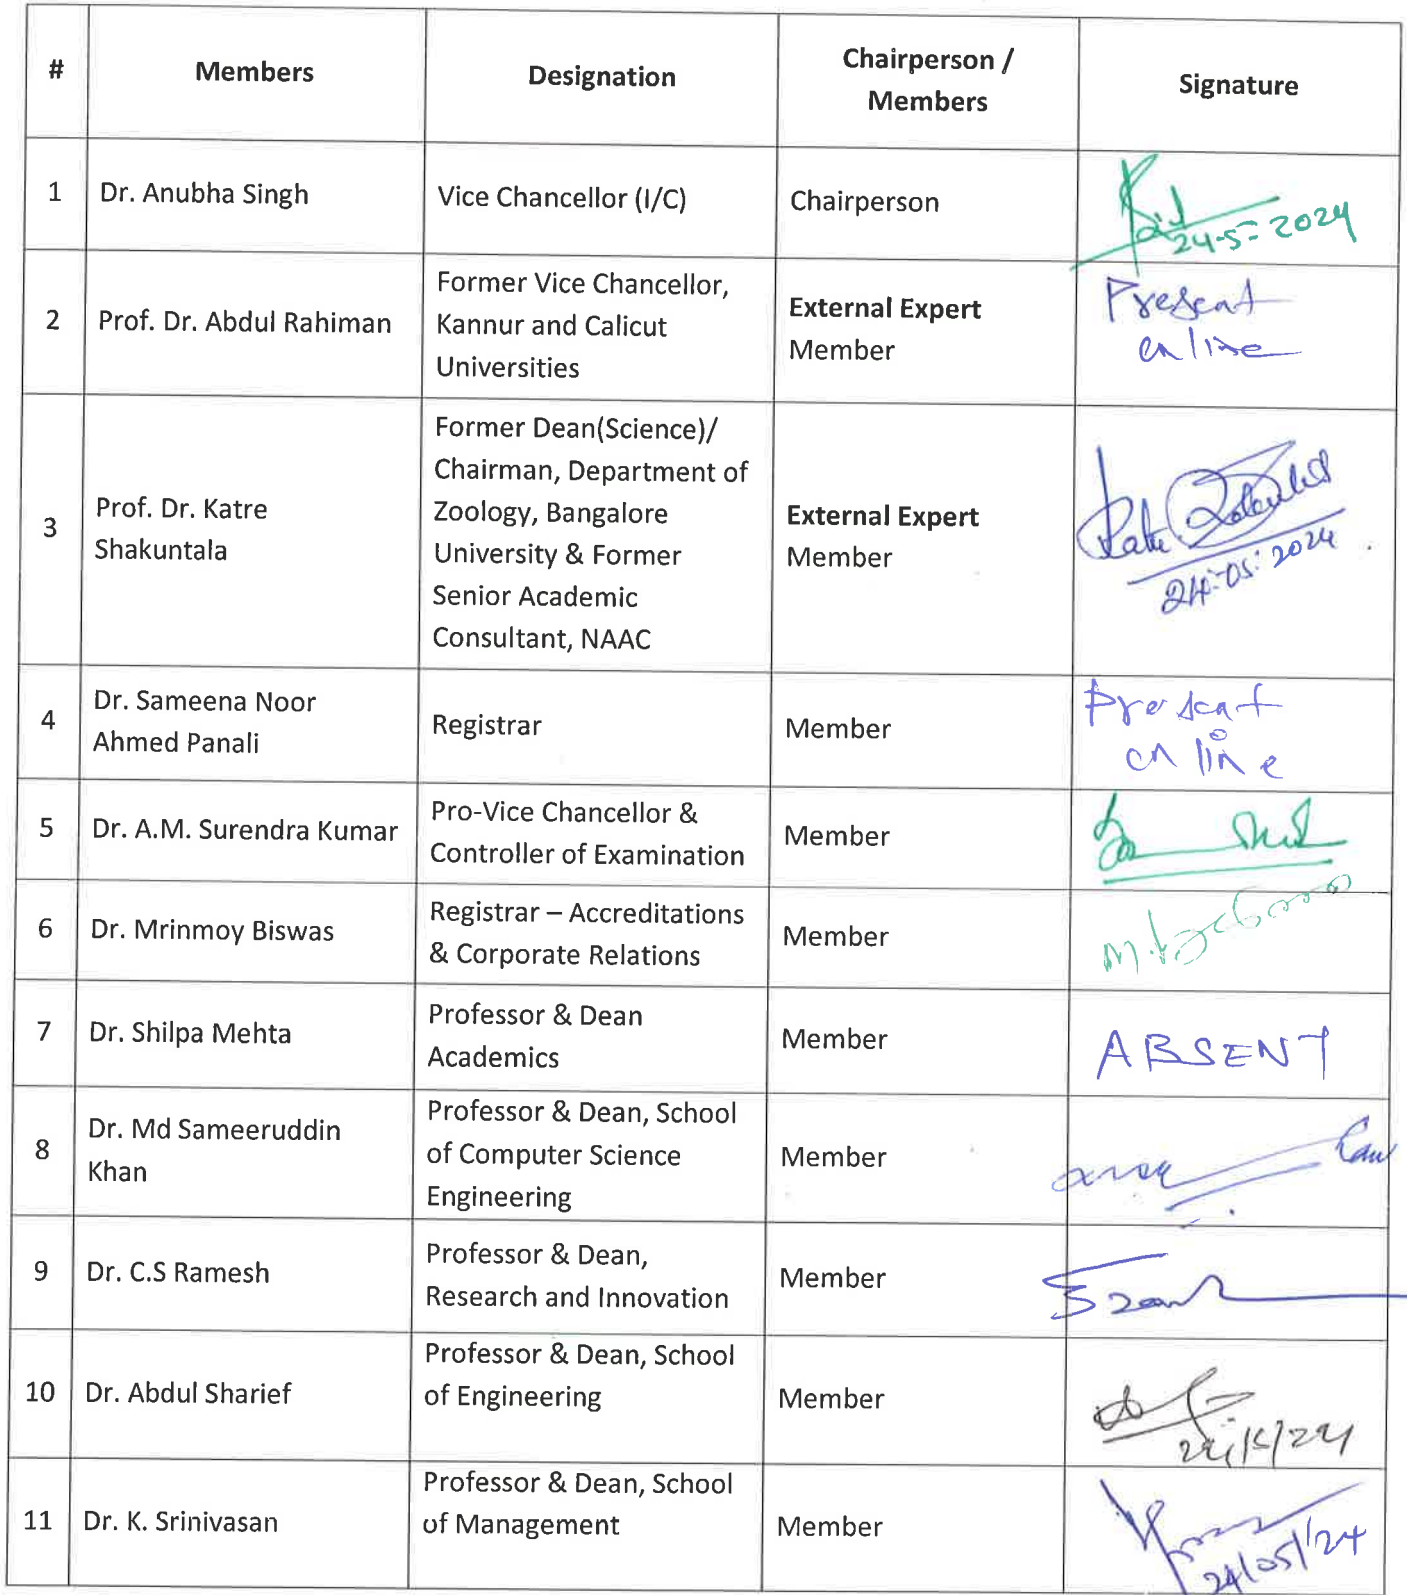 #
Members
Designation
Chairperson /
Members
Signature
1
Dr. Anubha Singh
Vice Chancellor (I/C)
Chairperson
24-5-2024
2
Prof. Dr. Abdul Rahiman
Former Vice Chancellor,
Kannur and Calicut
Universities
External Expert
Member
Present
online
3
Prof. Dr. Katre
Shakuntala
Former Dean(Science)/
Chairman, Department of
Zoology, Bangalore
University & Former
Senior Academic
Consultant, NAAC
External Expert
Member
24-05-2024
4
Dr. Sameena Noor
Ahmed Panali
Registrar
Member
Present
online
5
Dr. A.M. Surendra Kumar
Pro-Vice Chancellor &
Controller of Examination
Member
6
Dr. Mrinmoy Biswas
Registrar – Accreditations
& Corporate Relations
Member
7
Dr. Shilpa Mehta
Professor & Dean
Academics
Member
ABSENT
8
Dr. Md Sameeruddin
Khan
Professor & Dean, School
of Computer Science
Engineering
Member
9
Dr. C.S Ramesh
Professor & Dean,
Research and Innovation
Member
10
Dr. Abdul Sharief
Professor & Dean, School
of Engineering
Member
24/5/24
11
Dr. K. Srinivasan
Professor & Dean, School
of Management
Member
24/05/24